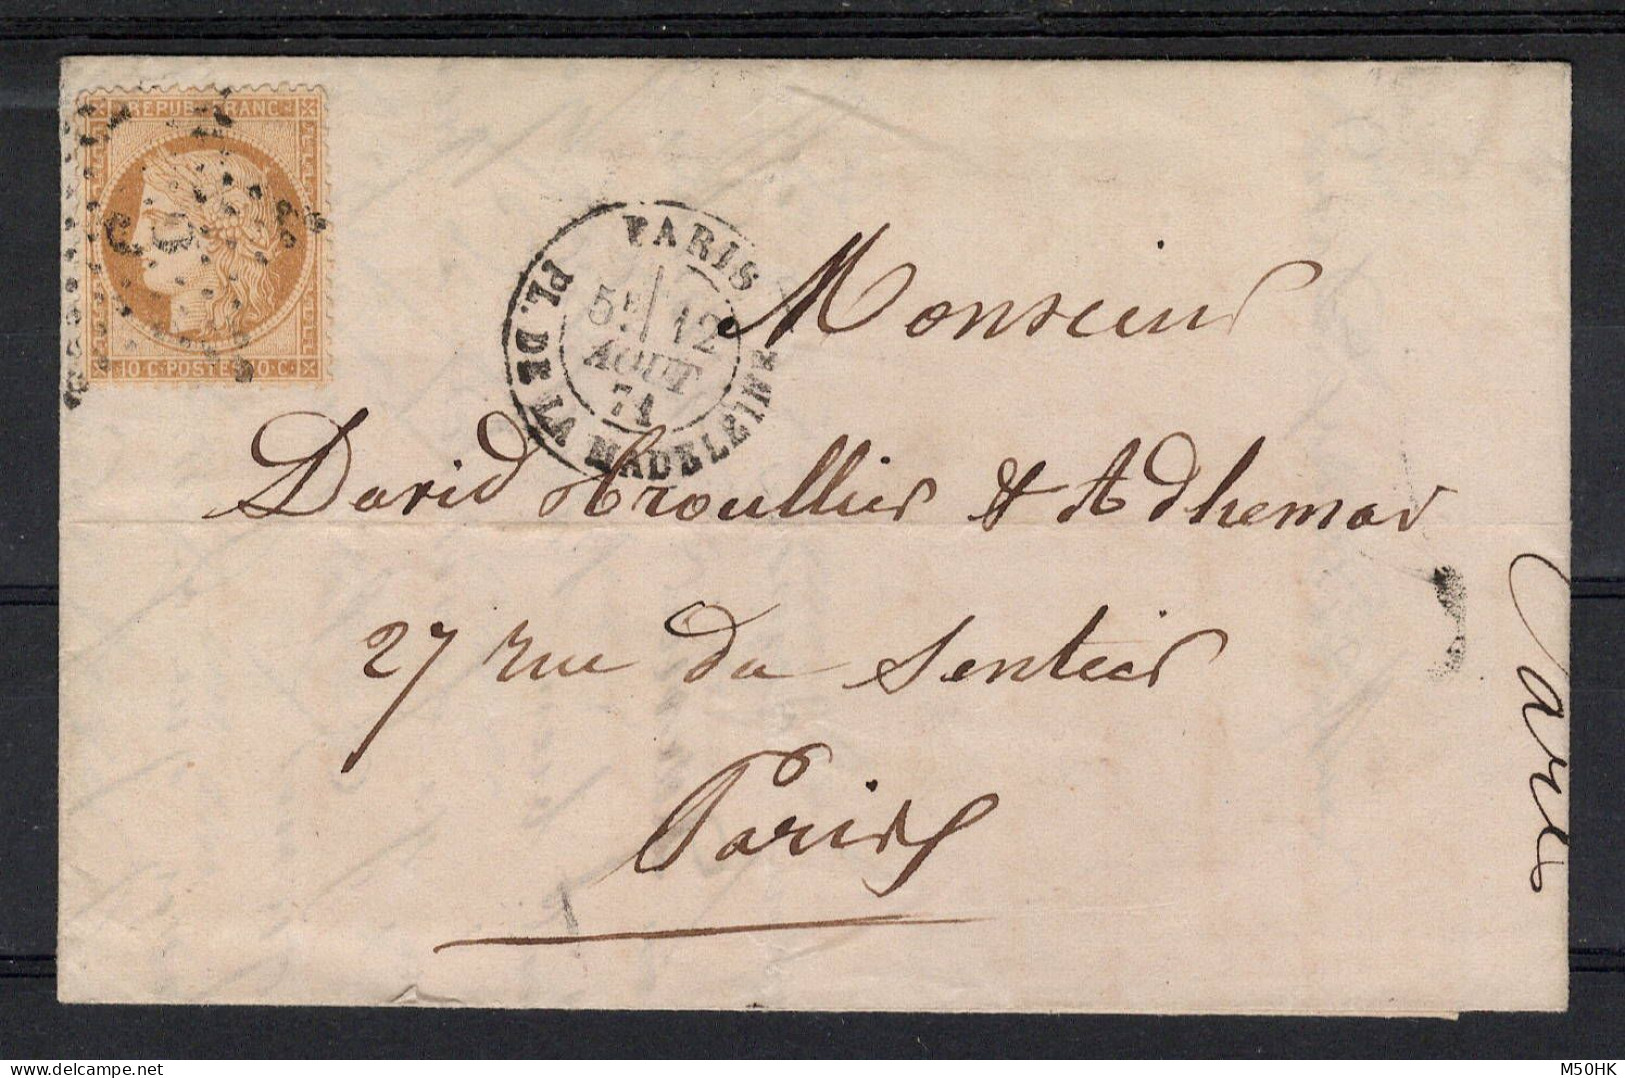 REPUB FRANC
10 C. POSTES 10 C.
PARIS
5E 12
AOUT
71
PL. DE LA MADELEINE
Monsieur
David Trouillier & Adhemar
27 rue du Sentier
Paris
Paris
M50HK